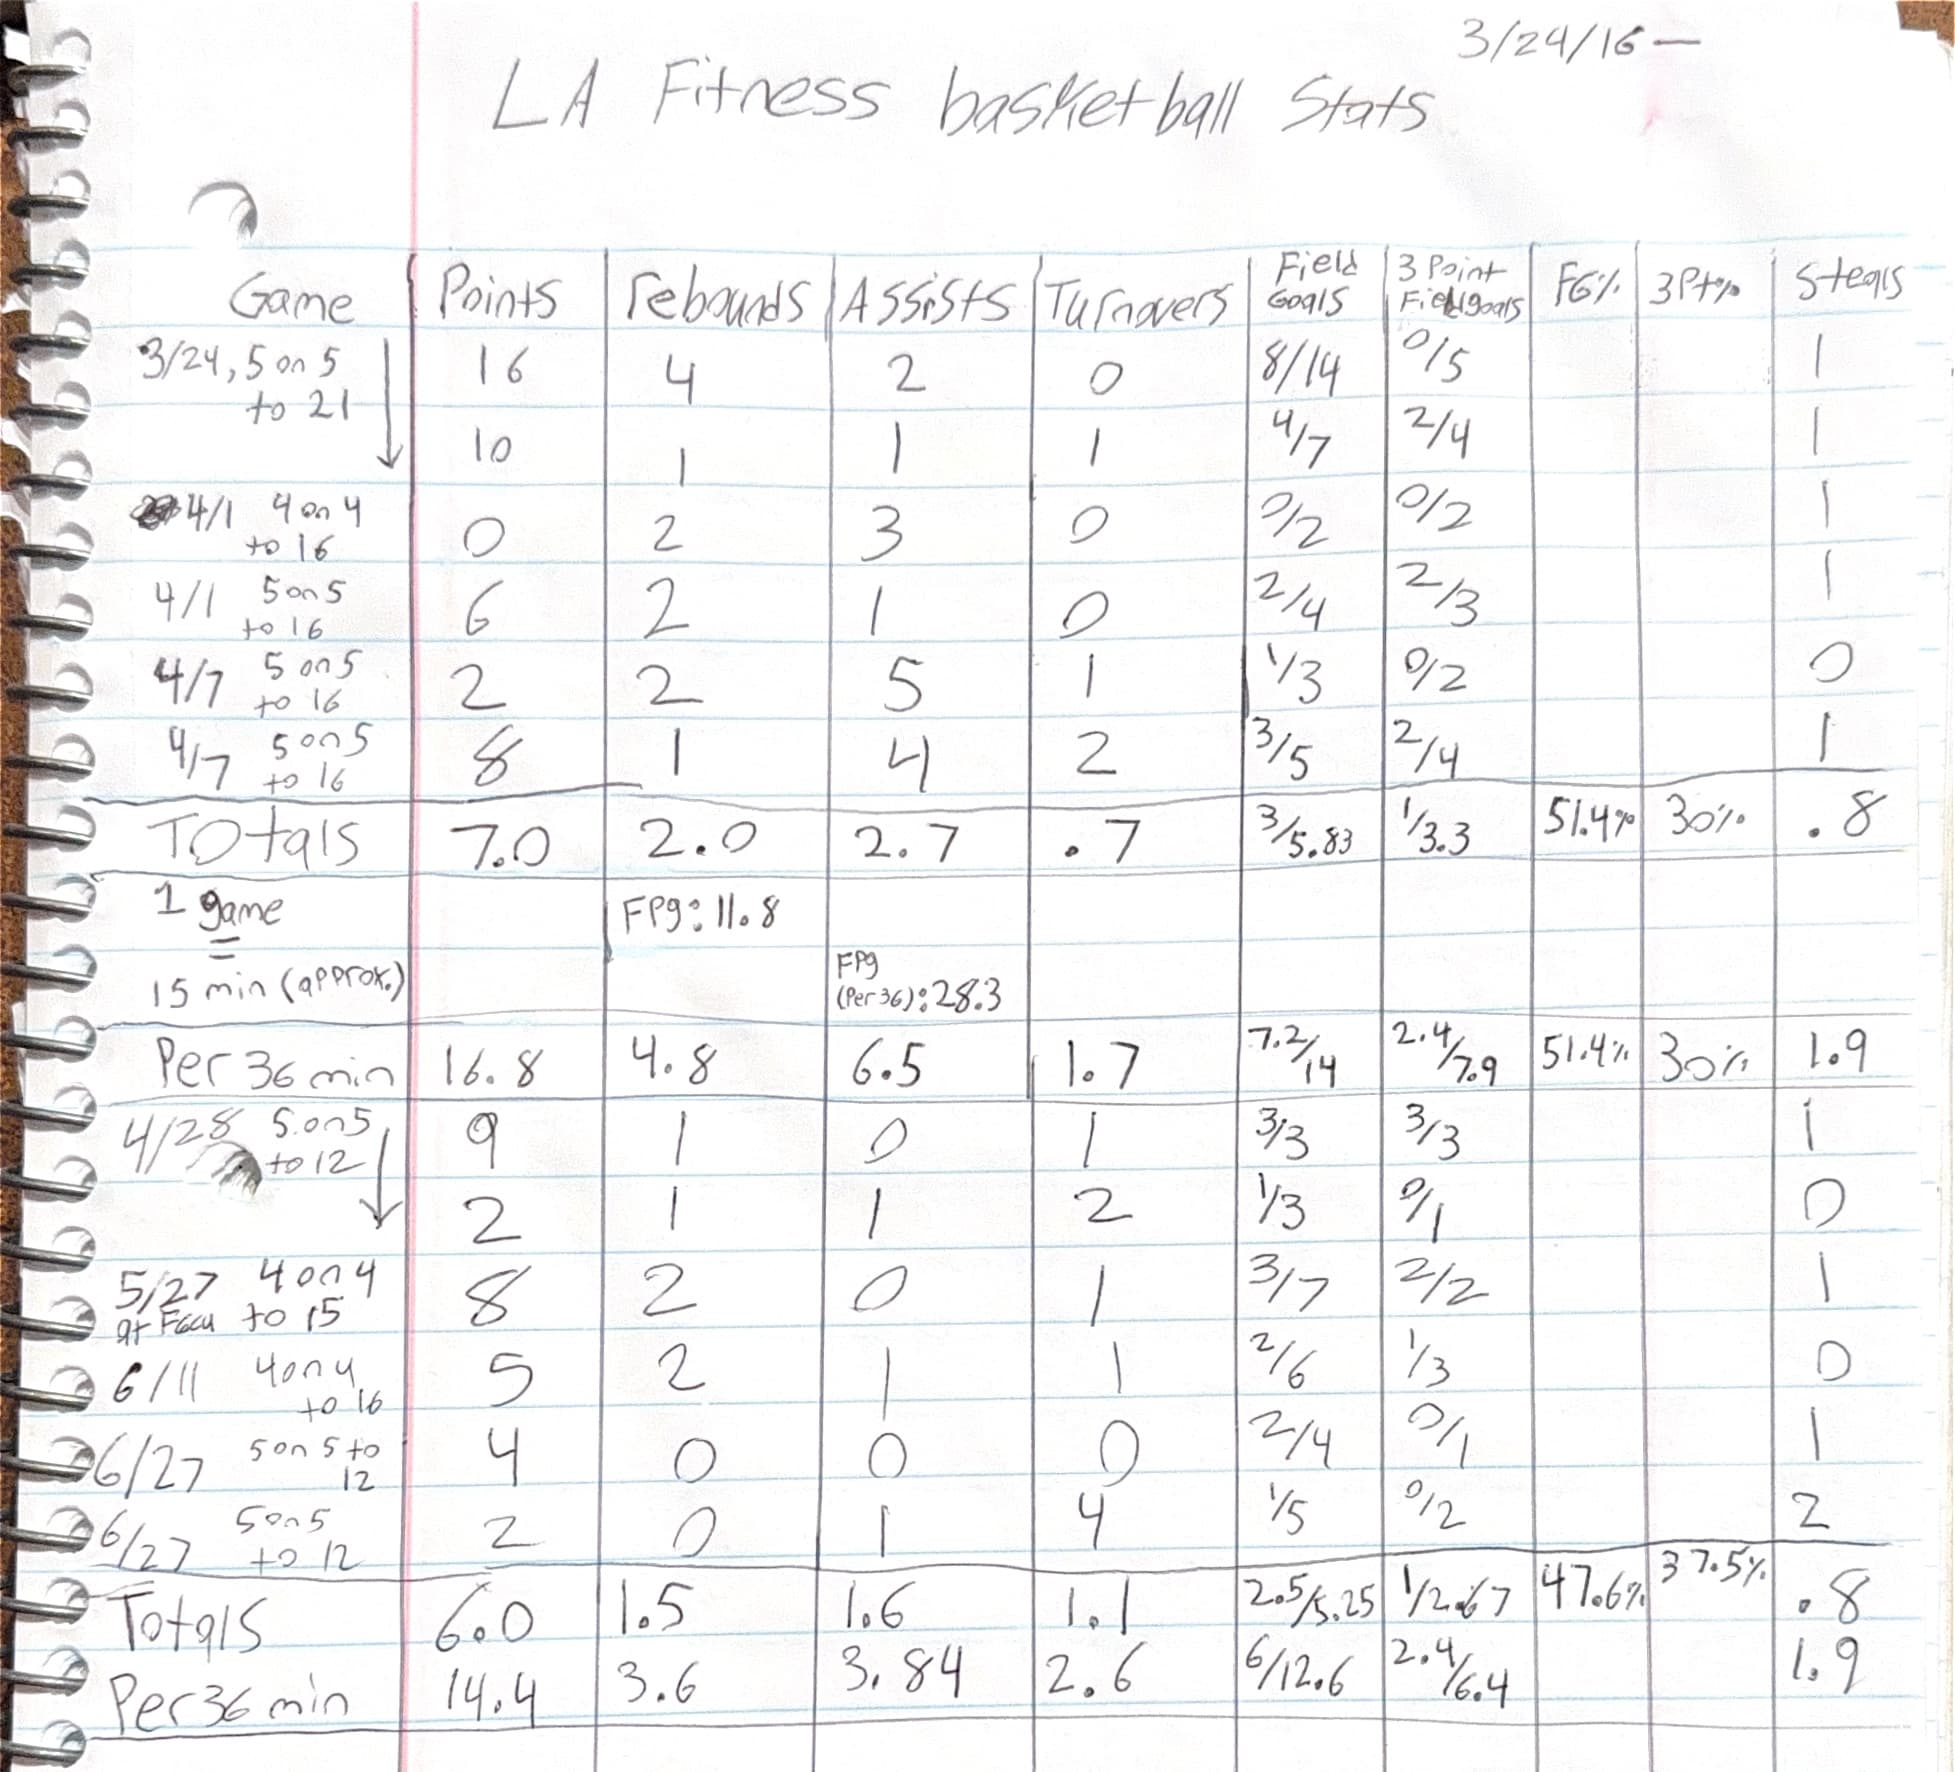 3/24/16 —
LA Fitness basketball Stats
Game Points rebounds Assists Turnovers Field Goals 3 Point Field goals FG% 3Pt% Steals
3/24, 5 on 5 to 21 16 4 2 0 8/14 0/5 1
10 1 1 1 4/7 2/4 1
4/1 4 on 4 to 16 0 2 3 0 0/2 0/2 1
4/1 5 on 5 to 16 6 2 1 0 2/4 2/3 1
4/7 5 on 5 to 16 2 2 5 1 1/3 0/2 0
4/7 5 on 5 to 16 8 1 4 2 3/5 2/4 1
TOtals 7.0 2.0 2.7 .7 3/5.83 1/3.3 51.4% 30% .8
1 game FPg: 11.8
=
15 min (approx.) FPg (Per 36): 28.3
Per 36 min 16.8 4.8 6.5 1.7 7.2/14 2.4/7.9 51.4% 30% 1.9
4/28 5 on 5 to 12 9 1 0 1 3/3 3/3 1
2 1 1 2 1/3 0/1 0
5/27 4 on 4 at FGCU to 15 8 2 0 1 3/7 2/2 1
6/11 4 on 4 to 16 5 2 1 1 2/6 1/3 0
6/27 5 on 5 to 12 4 0 0 0 2/4 0/1 1
6/27 5 on 5 to 12 2 0 1 4 1/5 0/2 2
Totals 6.0 1.5 1.6 1.1 2.5/5.25 1/2.67 47.6% 37.5% .8
Per 36 min 14.4 3.6 3.84 2.6 6/12.6 2.4/6.4 1.9